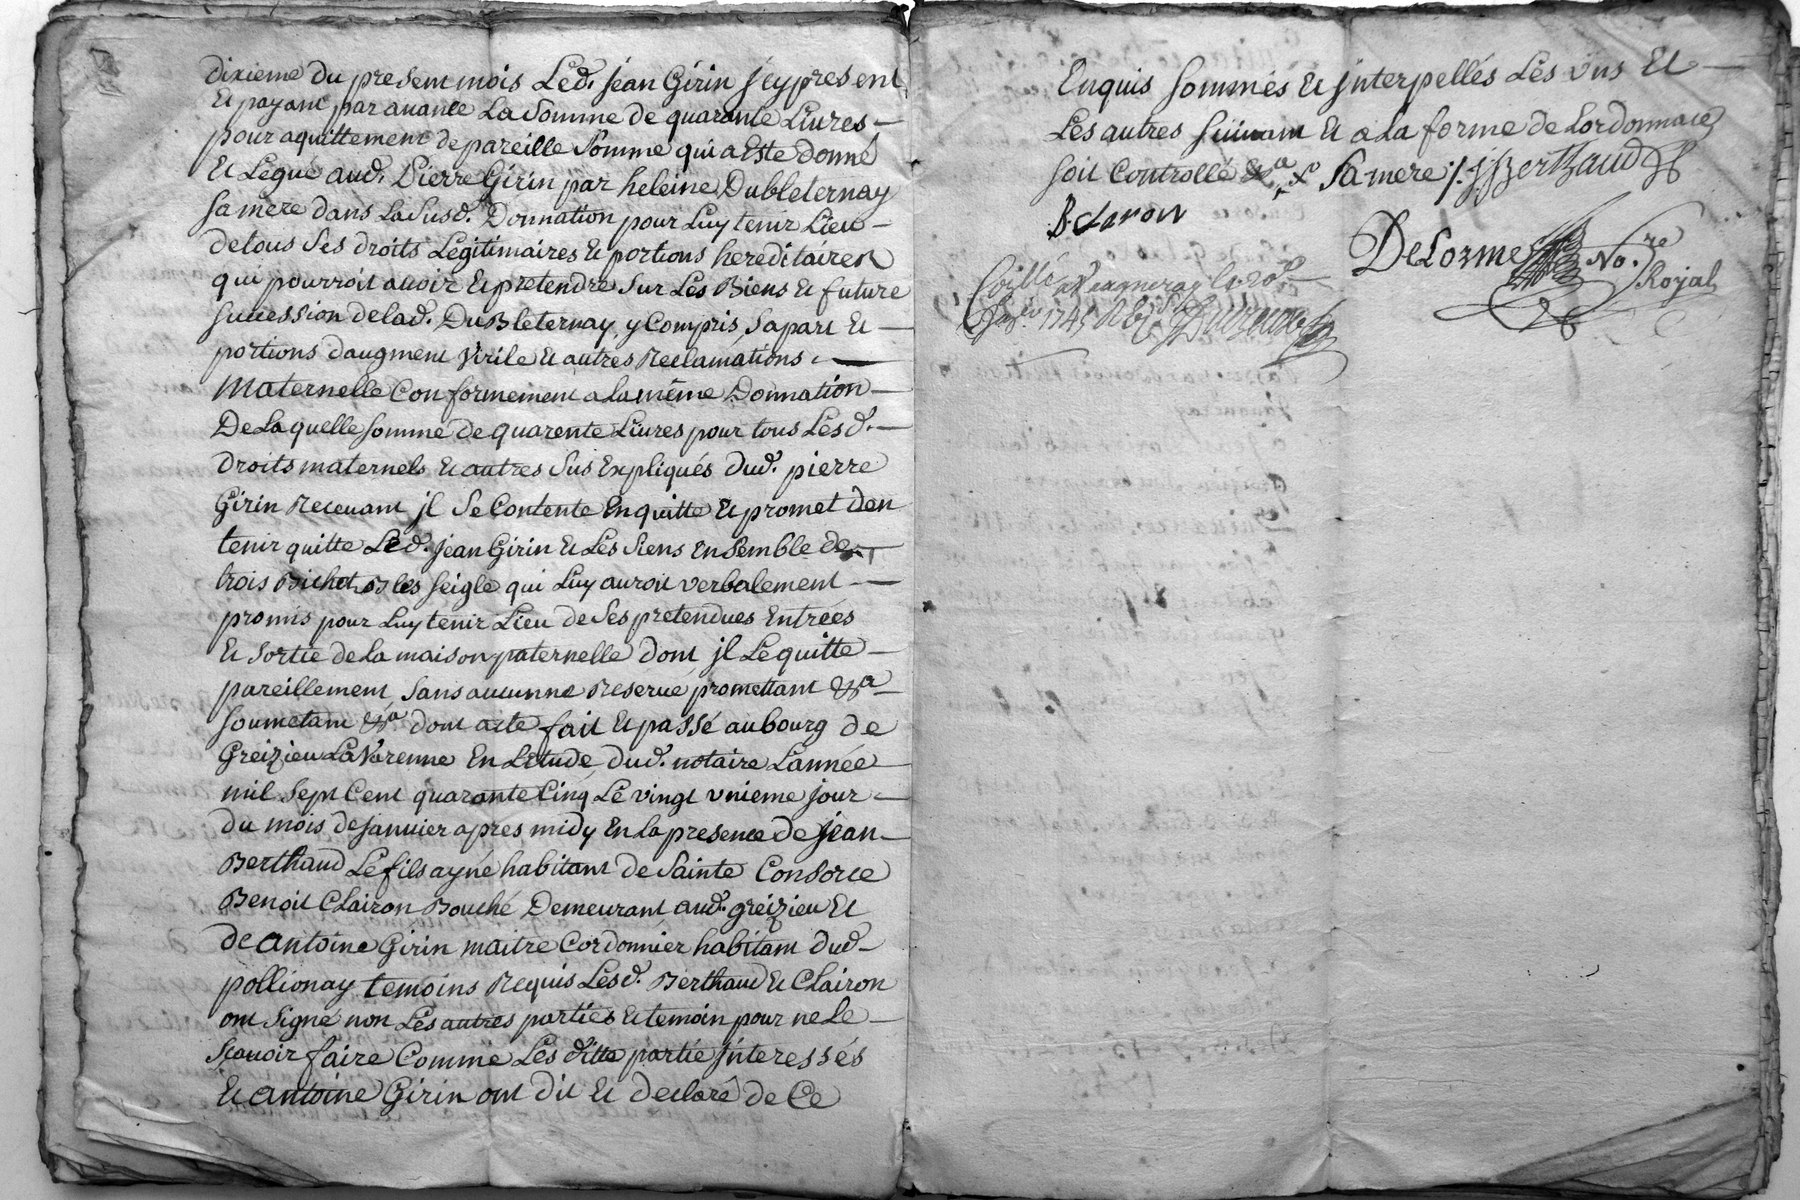 dixieme du present mois Led. jean Girin jcy present
Et payant par auance La Somme de quarante Liures
pour aquittement de pareille Somme qui a Este donné
Et Legué aud. Pierre Girin par heleine Dubleternay
sa mere dans La Susd. Donnation pour Luy tenir Lieu
de tous Ses droits Légitimaires Et portions hereditaires
qui pourroit auoir Et pretendre Sur Les Biens Et future
succession de Lad. DuBleternay, y Compris Sa part Et
portions daugment Virile Et autres Reclamations
Maternelle Conformement a La même Donnation
De La quelle somme de quarente Liures pour tous Lesd.
droits maternels Et autres Sus Expliqués dud. pierre
Girin Receuant jl Se Contente En quitte Et promet den
tenir quitte Led. jean Girin Et Les Siens Ensemble de
trois Bichet Bles seigle qui Luy auroit verbalement
promis pour Luy tenir Lieu de Ses pretendues Entrées
Et Sortie de La maison paternelle dont jl Le quitte
pareillement Sans aucunne Reserue promettant &a
soumetant &a dont acte fait Et passé au bourg de
Greizieu La Varenne En Letude dud. notaire Lannée
mil Sept Cent quarante Cinq Le vingt vnieme jour
du mois de januier apres midy En la presence de jean
Berthaud Le fils ayné habitant de Sainte Consorce
Benoit Clairon Bouché Demeurant aud. greizieu Et
de antoine Girin maitre Cordonnier habitant dud.
pollionay temoins Requis Lesd. Berthaud Et Clairon
ont Signé non Les autres parties Et temoin pour ne Le
Scauoir faire Comme Les ditte partie jnteressés
Et antoine Girin ont dit Et declaré de Ce
Enquis Sommés Et jnterpellés Les vns Et
Les autres suiuant Et a La forme de Lordonnace
soit Controllé &a x Sa mere /. J Berthaud
B. Claron
DeLorme No.re Royal
1745